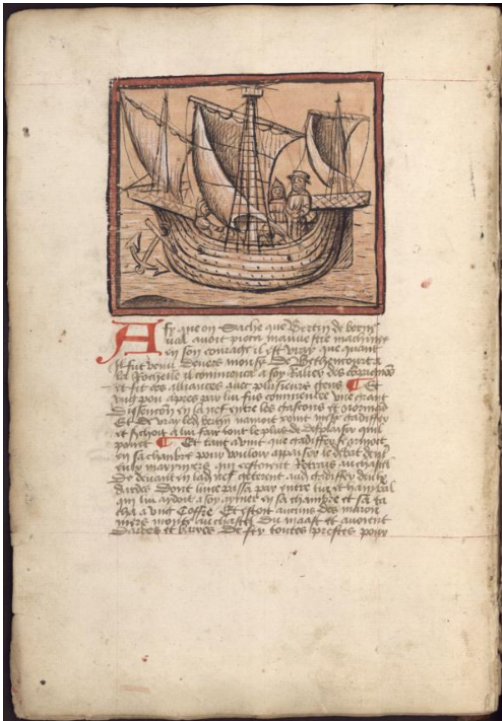 Afin que on Sache que Bertin de bern
en son couraige il est vray que quant
il fut venu Devers monsr De Bethencourt a
la Rochelle il commença a soy Ralier des compaignons
et fit ses alliances avec plusieurs gens Et
ung pou apres par lui fus commencee une grant
Dissencion en la nef entre les gascons et normans
Et De vray led bertin namoit point messr gadiffer
et a lui faire tout le plus de desplaisir quil
pouoit Et tant avint que gadiffer se armoit
en sa chambre pour vouloir appaisier le debat
De devant en lad nef geterent aud gadiffer deulx
dardes Dont lune passa par entre lui et hannibal
qui lui aydoit a soy armer en sa chambre et sa
a ung Coffre Et estoit aucuns des maron
niers montes au chastel Du maast et avoient
Dardes et barres De fer toutes prestes pour